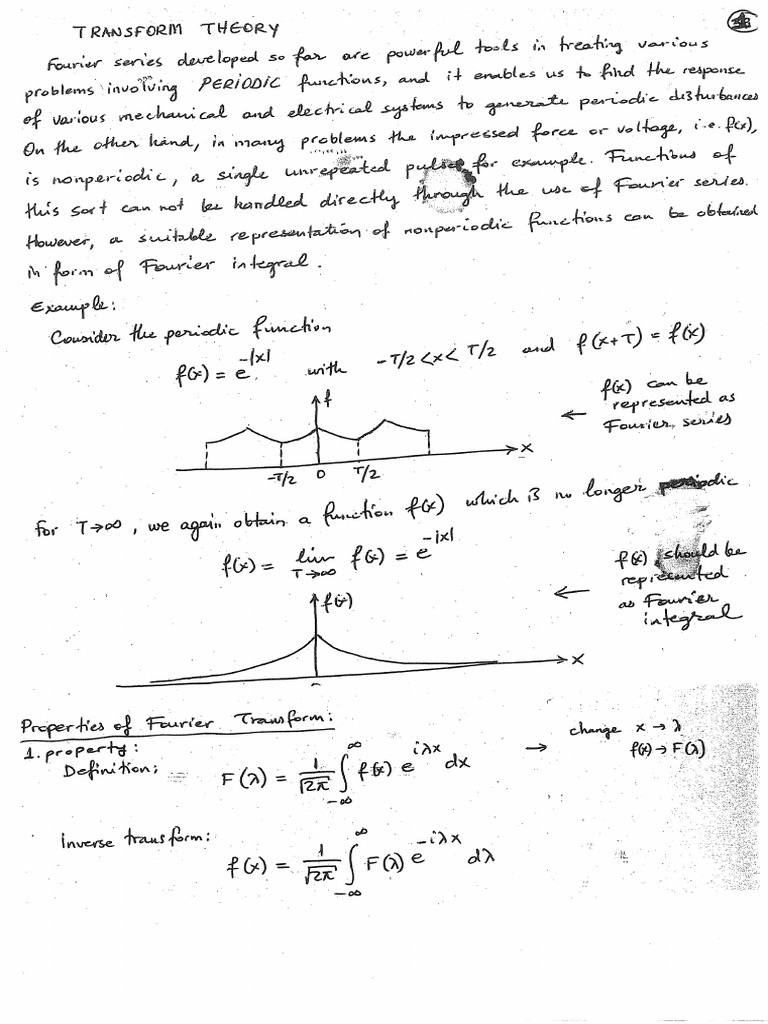 TRANSFORM THEORY
Fourier series developed so far are powerful tools in treating various
problems involving PERIODIC functions, and it enables us to find the response
of various mechanical and electrical systems to generate periodic disturbances
On the other hand, in many problems the impressed force or voltage, i.e. f(x),
is nonperiodic, a single unrepeated pulse for example. Functions of
this sort can not be handled directly through the use of Fourier series.
However, a suitable representation of nonperiodic functions can be obtained
in form of Fourier integral.
Example:
Consider the periodic function
f(x) = e^{-|x|} with -T/2 < x < T/2 and f(x+T) = f(x)
f
f(x) can be
← represented as
Fourier series
x
-T/2 0 T/2
For T→∞, we again obtain a function f(x) which is no longer periodic
f(x) = lim_{T→∞} f(x) = e^{-|x|}
f(x) should be
represented
← as Fourier
integral
f(x)
x
Properties of Fourier Transform:
1. property:
Definition; F(λ) = 1/√2π ∫_{-∞}^{∞} f(x) e^{iλx} dx → change x → λ
f(x) → F(λ)
inverse transform: f(x) = 1/√2π ∫_{-∞}^{∞} F(λ) e^{-iλx} dλ